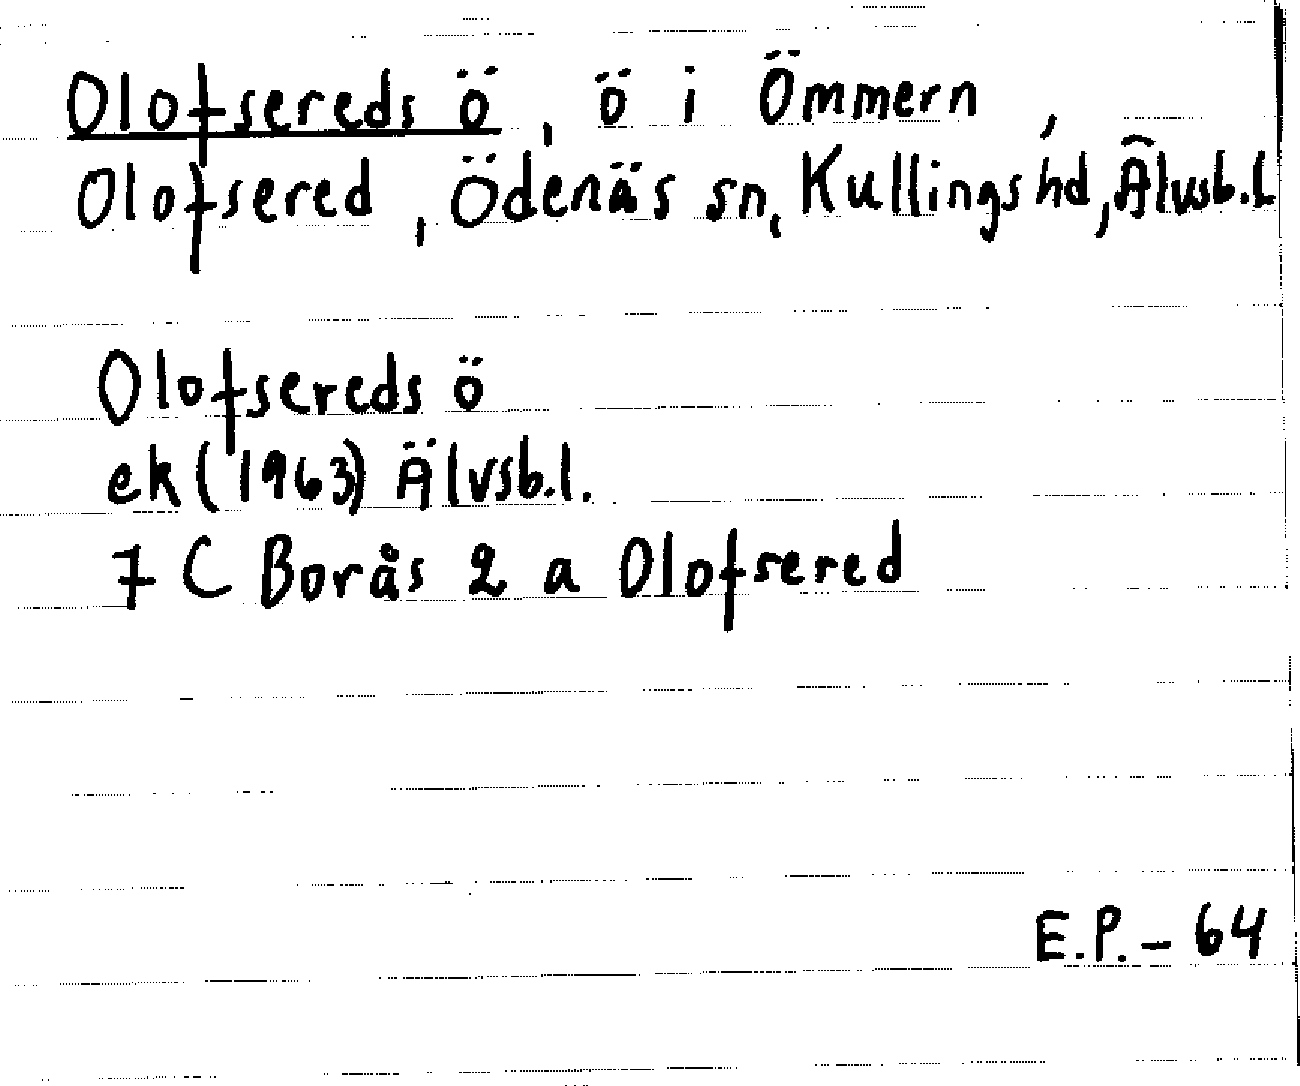 Olofsereds ö, ö i Ömmern,
Olofsered, Ödenäs sn, Kullings hd, Älvsb.l.
Olofsereds ö
ek (1963) Älvsb.l.
7 C Borås 2 a Olofsered
E.P.-64